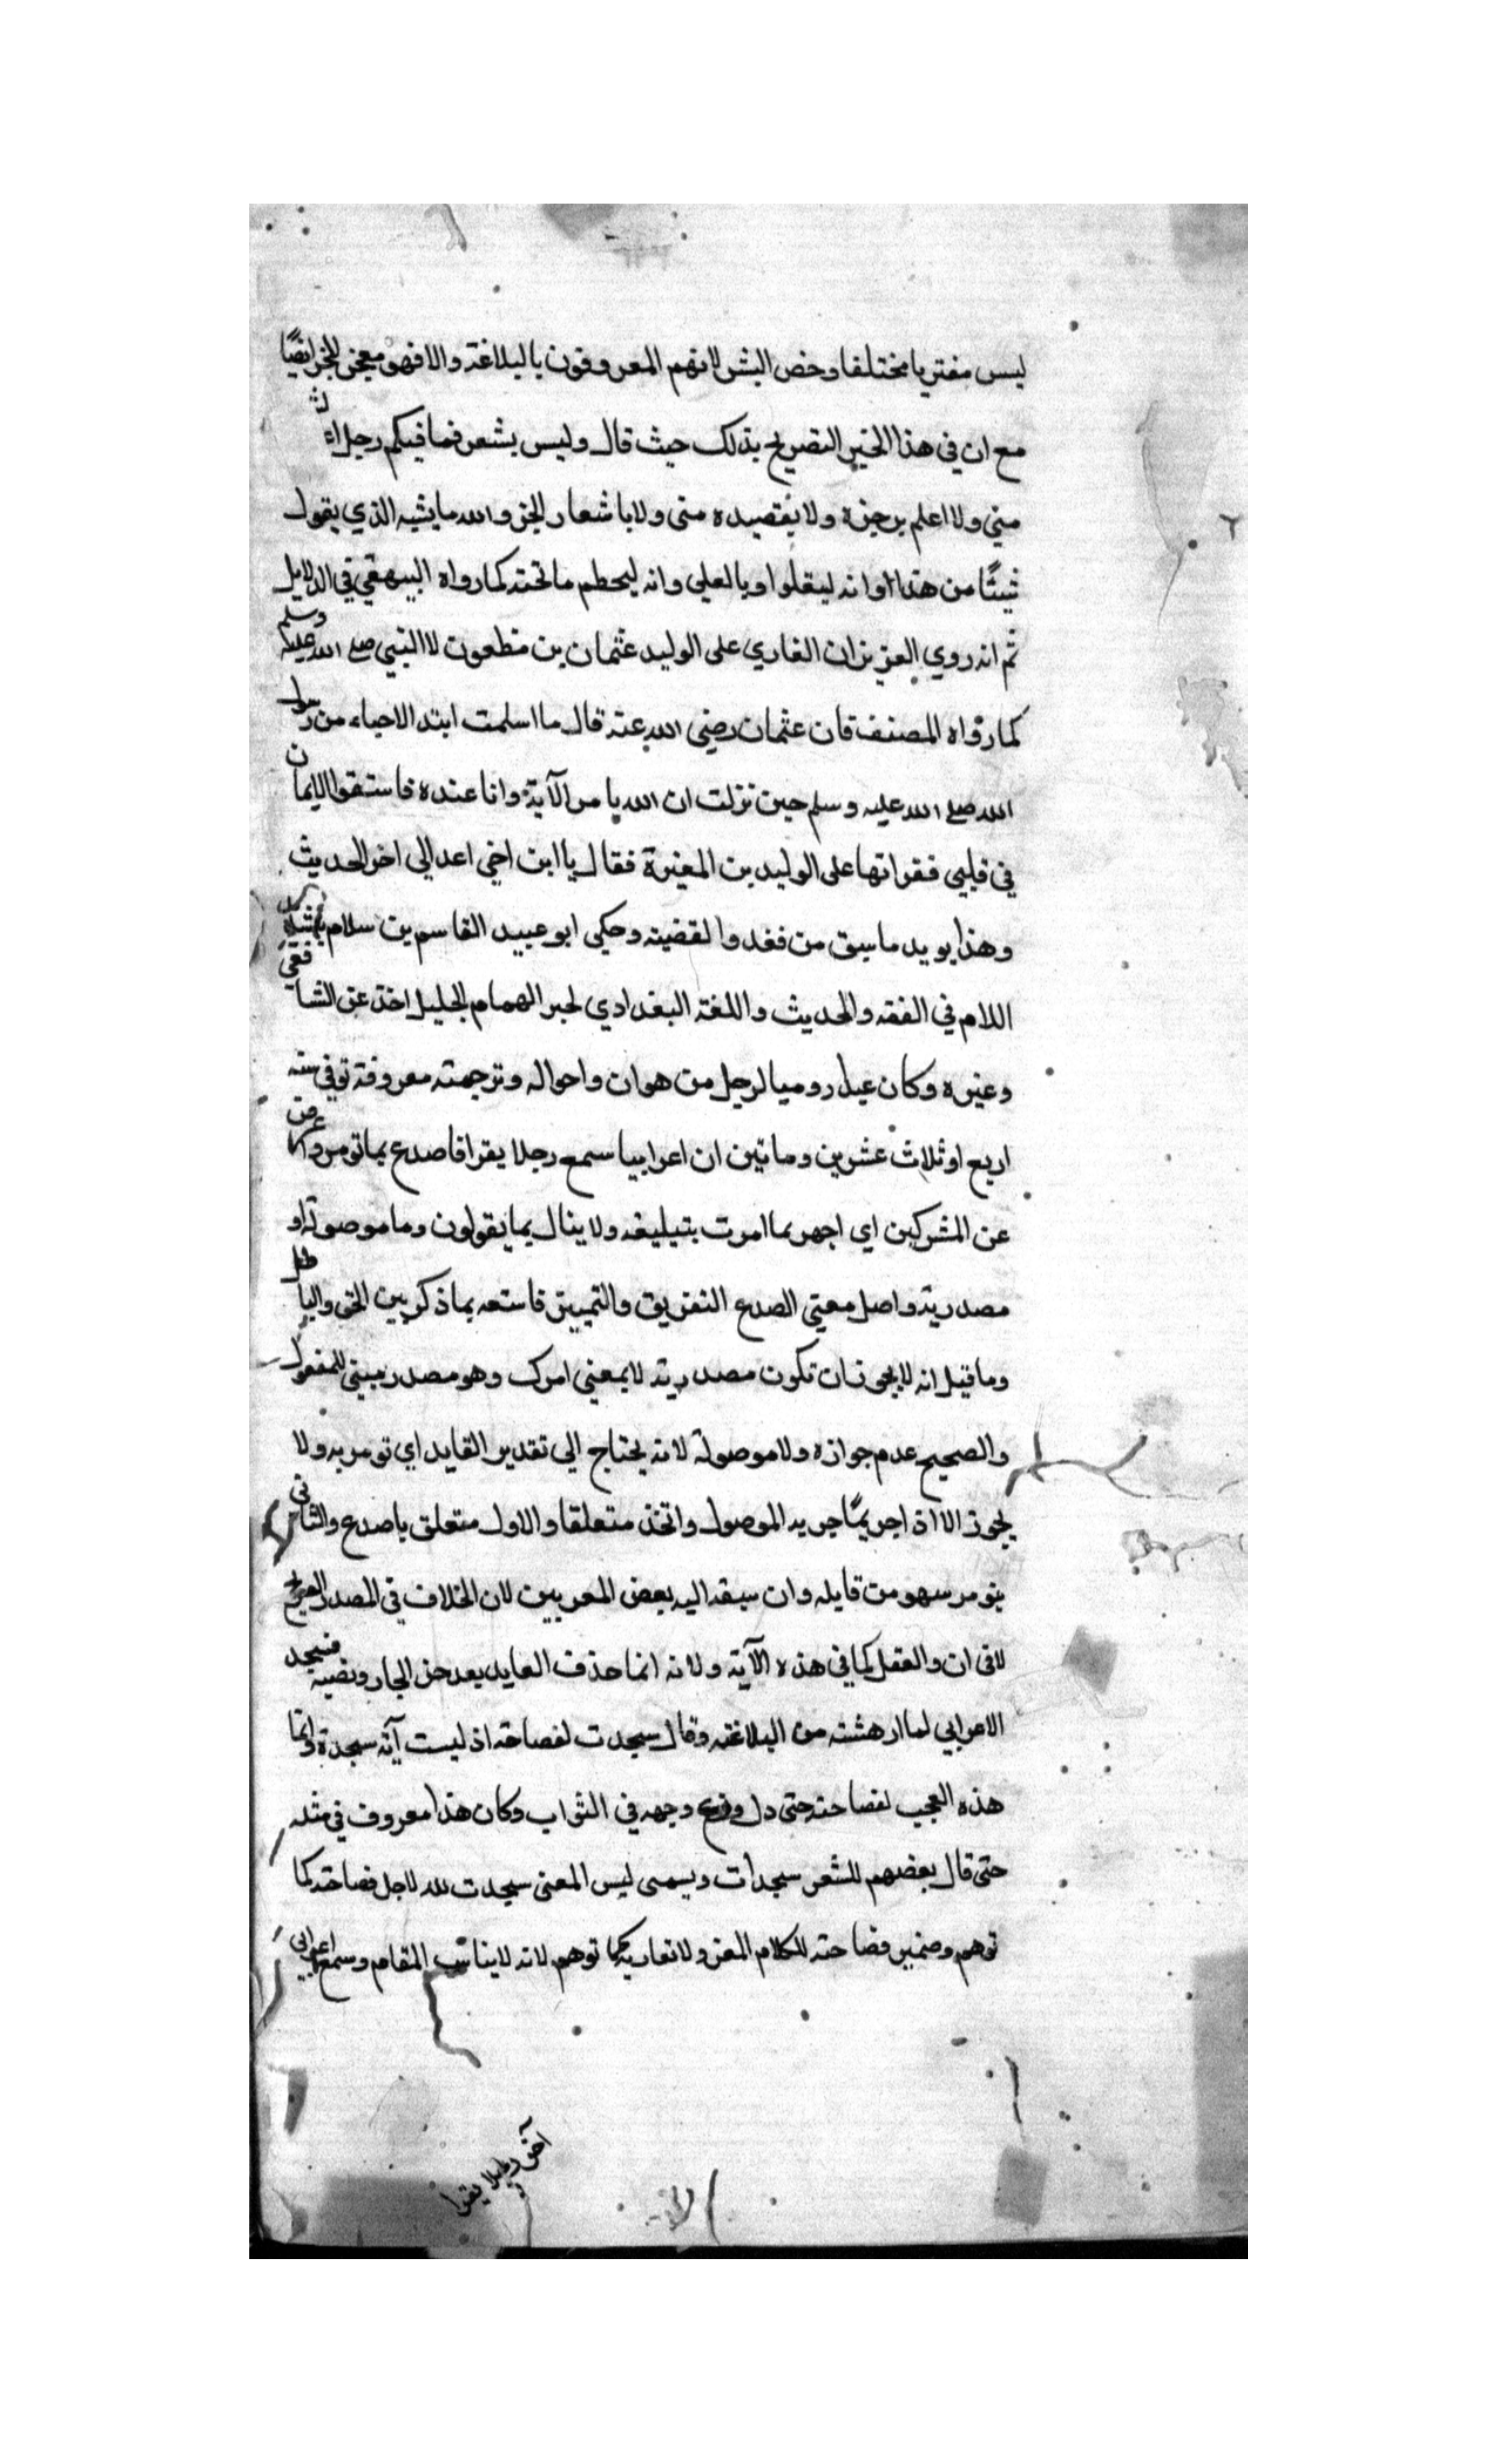 ليس مفتريا مختلفا وخص البشر لانهم المعروفون بالبلاغة والا فهو معجز للجن ايضا
مع ان في هذا الخبر التصريح بذلك حيث قال وليس بشعر فما فيكم رجل
مني ولا اعلم برجزه ولا بقصيده مني ولا باشعار الجن والله ما يشبه الذي يقول
شيئا من هذا وانه ليعلوا وانه ليحطم ما تحته كما رواه البيهقي في الدلايل
ثم انه روي ان القاري على الوليد عثمان بن مظعون لا النبي صلى الله عليه وسلم
كما رواه المصنف فان عثمان رضي الله عنه قال ما اسلمت ابتد الا حياء من رسول
الله صلى الله عليه وسلم حين نزلت ان الله يامر الآية وانا عنده فاستقر الايمان
في قلبي فقراتها على الوليد بن المغيرة فقال يا ابن اخي اعد الى اخر الحديث
وهذا يويد ما سبق من القضية وحكى ابو عبيد القاسم بن سلام بتشديد
اللام في الفقه والحديث واللغة البغدادي الهمام الجليل اخذ عن الشافعي
وغيره وكان روميا لرجل من واحواله وترجمته معروفة توفي سنة
اربع او ثلاث عشرين وماتين ان اعرابيا سمع رجلا يقرا فاصدع بما تومر واعرض
عن المشركين اي اجهر بما امرت بتبليغه ولا ينال بما يقولون وما موصولة او
مصدرية واصل معنى الصدع التفريق والتمييز بما ذكر بين الحق والباطل
وما قيل انه لا يجوز ان تكون مصدرية لا بمعنى امرك وهو مصدر مبني للمفعول
والصحيح عدم جوازه ولا موصولة لانه يحتاج الى تقدير العايد اي تومر به ولا
يجوز الا اذا جر بما جر به الموصول واتحد متعلقا والاول متعلق باصدع والثاني
بتومر سهو من قايله وان سبقه اليه بعض المعربين لان الخلاف في المصدر الصريح
لا في ان والفعل كما في هذه الآية ولانه انما حذف العايد بعد حذف الجار ونصبه فسجد
الاعرابي لما ادهشته من البلاغة وقال سجدت لفصاحته اذ ليست آية سجدة وانما
هذه العجب لفصاحته حتى وجهه في التراب وكان هذا معروف في مثله
حتى قال بعضهم للشعر سجدات ليس المعنى سجدت لله لاجل فصاحته كما
توهم وضمير فصاحته للكلام لا لقاريه كما توهم لانه لا يناسب المقام وسمع اعرابي
آخر رجلا يقرا